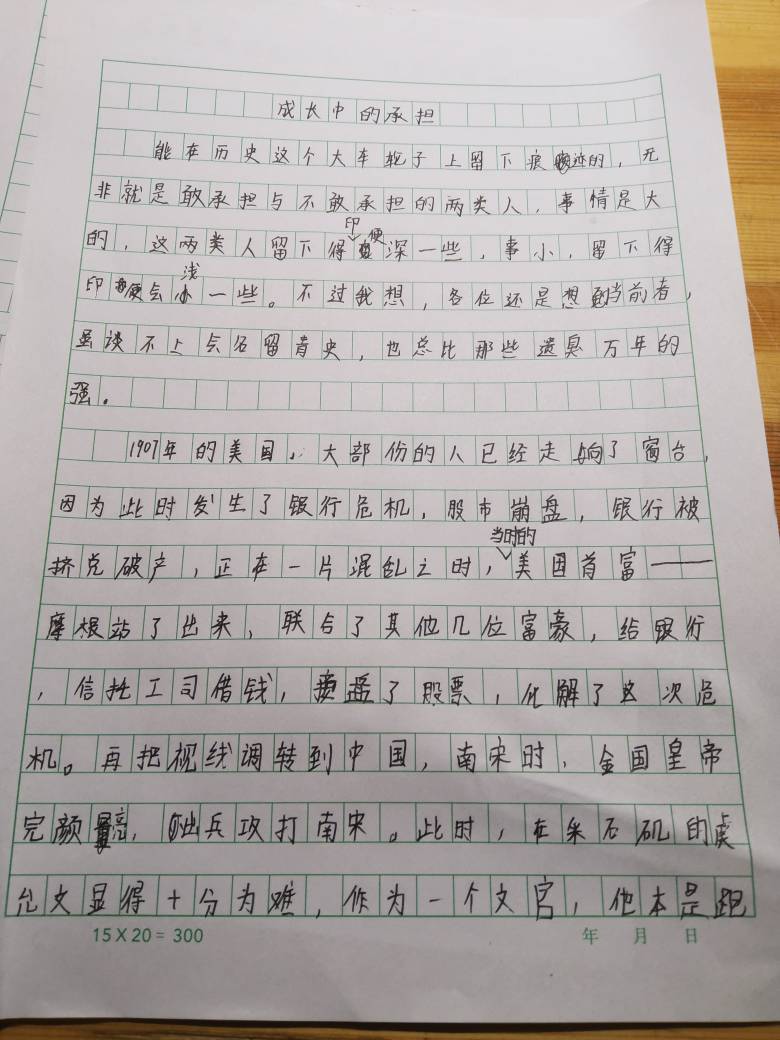 成长中的承担
能在历史这个大车轮子上留下痕迹的，无
非就是敢承担与不敢承担的两类人，事情是大
的，这两类人留下得印便深一些，事小，留下得
印便会浅一些。不过我想，各位还是想到当前者，
虽谈不上会名留青史，也总比那些遗臭万年的
强。
1907年的美国，大部份的人已经走响了窗台，
因为此时发生了银行危机，股市崩盘，银行被
挤兑破产，正在一片混乱之时，当时的美国首富——
摩根站了出来，联合了其他几位富豪，给银行
，信托工司借钱，了股票，化解了这次危
机。再把视线调转到中国，南宋时，金国皇帝
完颜亮，出兵攻打南宋。此时，在采石矶的虞
允文显得十分为难，作为一个文官，他本是跑
15×20=300
年 月 日